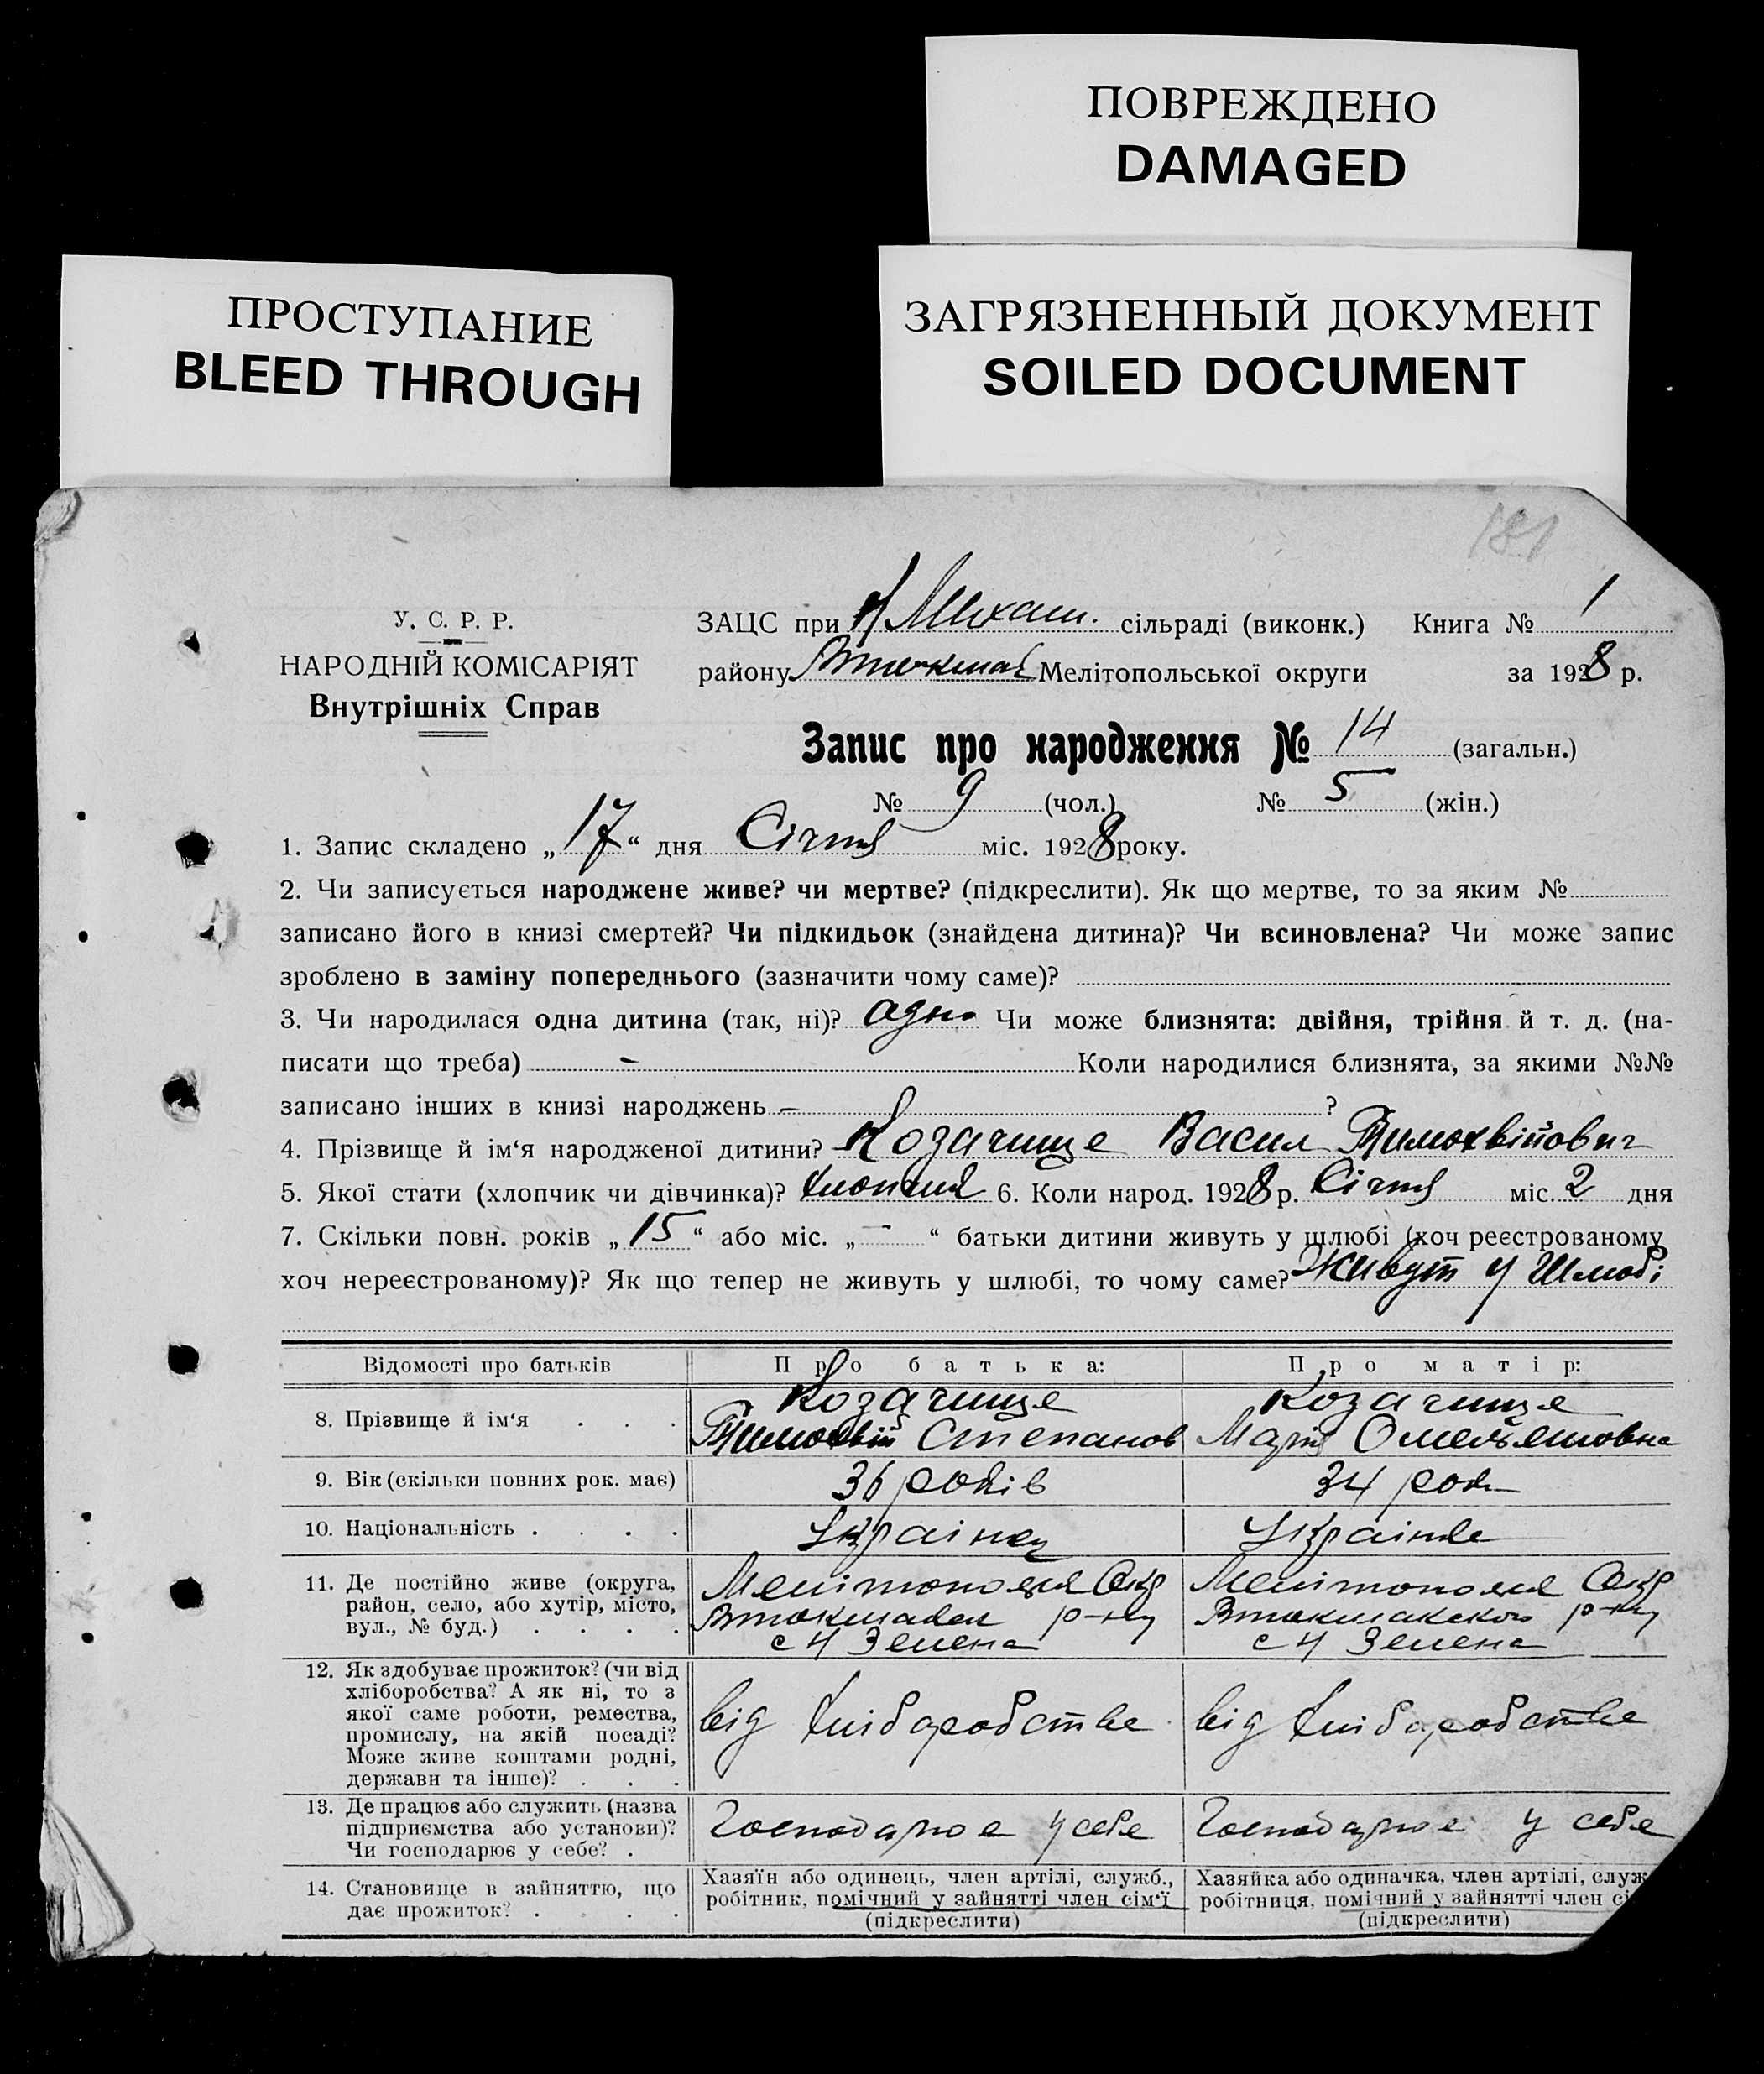 ПОВРЕЖДЕНО
DAMAGED
ПРОСТУПАНИЕ
BLEED THROUGH
ЗАГРЯЗНЕННЫЙ ДОКУМЕНТ
SOILED DOCUMENT
181
У. С. Р. Р.
НАРОДНІЙ КОМІСАРІЯТ
Внутрішніх Справ
ЗАЦС при Н Михай. сільраді (виконк.) Книга № 1
району Втокмак Мелітопольської округи за 1928 р.
Запис про народження № 14 (загальн.)
№ 9 (чол.) № 5 (жін.)
1. Запис складено „17“ дня Січня міс. 1928 року.
2. Чи записується народжене живе? чи мертве? (підкреслити). Як що мертве, то за яким №
записано його в книзі смертей? Чи підкидьок (знайдена дитина)? Чи всиновлена? Чи може запис
зроблено в заміну попереднього (зазначити чому саме)?
3. Чи народилася одна дитина (так, ні)? одно Чи може близнята: двійня, трійня й т. д. (на-
писати що треба) – Коли народилися близнята, за якими №№
записано інших в книзі народжень – ?
4. Прізвище й ім‘я народженої дитини? Козачище Васил Тимохвійович
5. Якої стати (хлопчик чи дівчинка)? хлопчик 6. Коли народ. 1928 р. Січня міс. 2 дня
7. Скільки повн. років „15“ або міс. „–“ батьки дитини живуть у шлюбі (хоч реєстрованому
хоч нереєстрованому)? Як що тепер не живуть у шлюбі, то чому саме? Живут у Шлюбі
Відомості про батьків Про батька: Про матір:
8. Прізвище й ім‘я . . . Козачище Козачище
Тимохвій Степанов Марія Омельяновна
9. Вік (скільки повних рок. має) 36 років 34 роки
10. Національність . . . . Українец Українка
11. Де постійно живе (округа,
район, село, або хутір, місто,
вул., № буд.) . . . .
Мелітопольск Окр
Втокмацьк р-ну
с Ч Зелена
Мелітопольск Окр
Втокмакского р-ну
с Ч Зелена
12. Як здобуває прожиток? (чи від
хліборобства? А як ні, то з
якої саме роботи, ремества,
промислу, на якій посаді?
Може живе коштами родні,
держави та інше)? . . .
від хліборобства
від хліборобства
13. Де працює або служить (назва
підприємства або установи)?
Чи господарює у себе? .
Господарює у себе
Господарює у себе
14. Становище в зайняттю, що
дає прожиток? . . . .
Хазяїн або одинець, член артілі, служб.,
робітник, помічний у зайнятті член сім‘ї
(підкреслити)
Хазяйка або одиначка, член артілі, служ
робітниця, помічний у зайнятті член сі
(підкреслити)